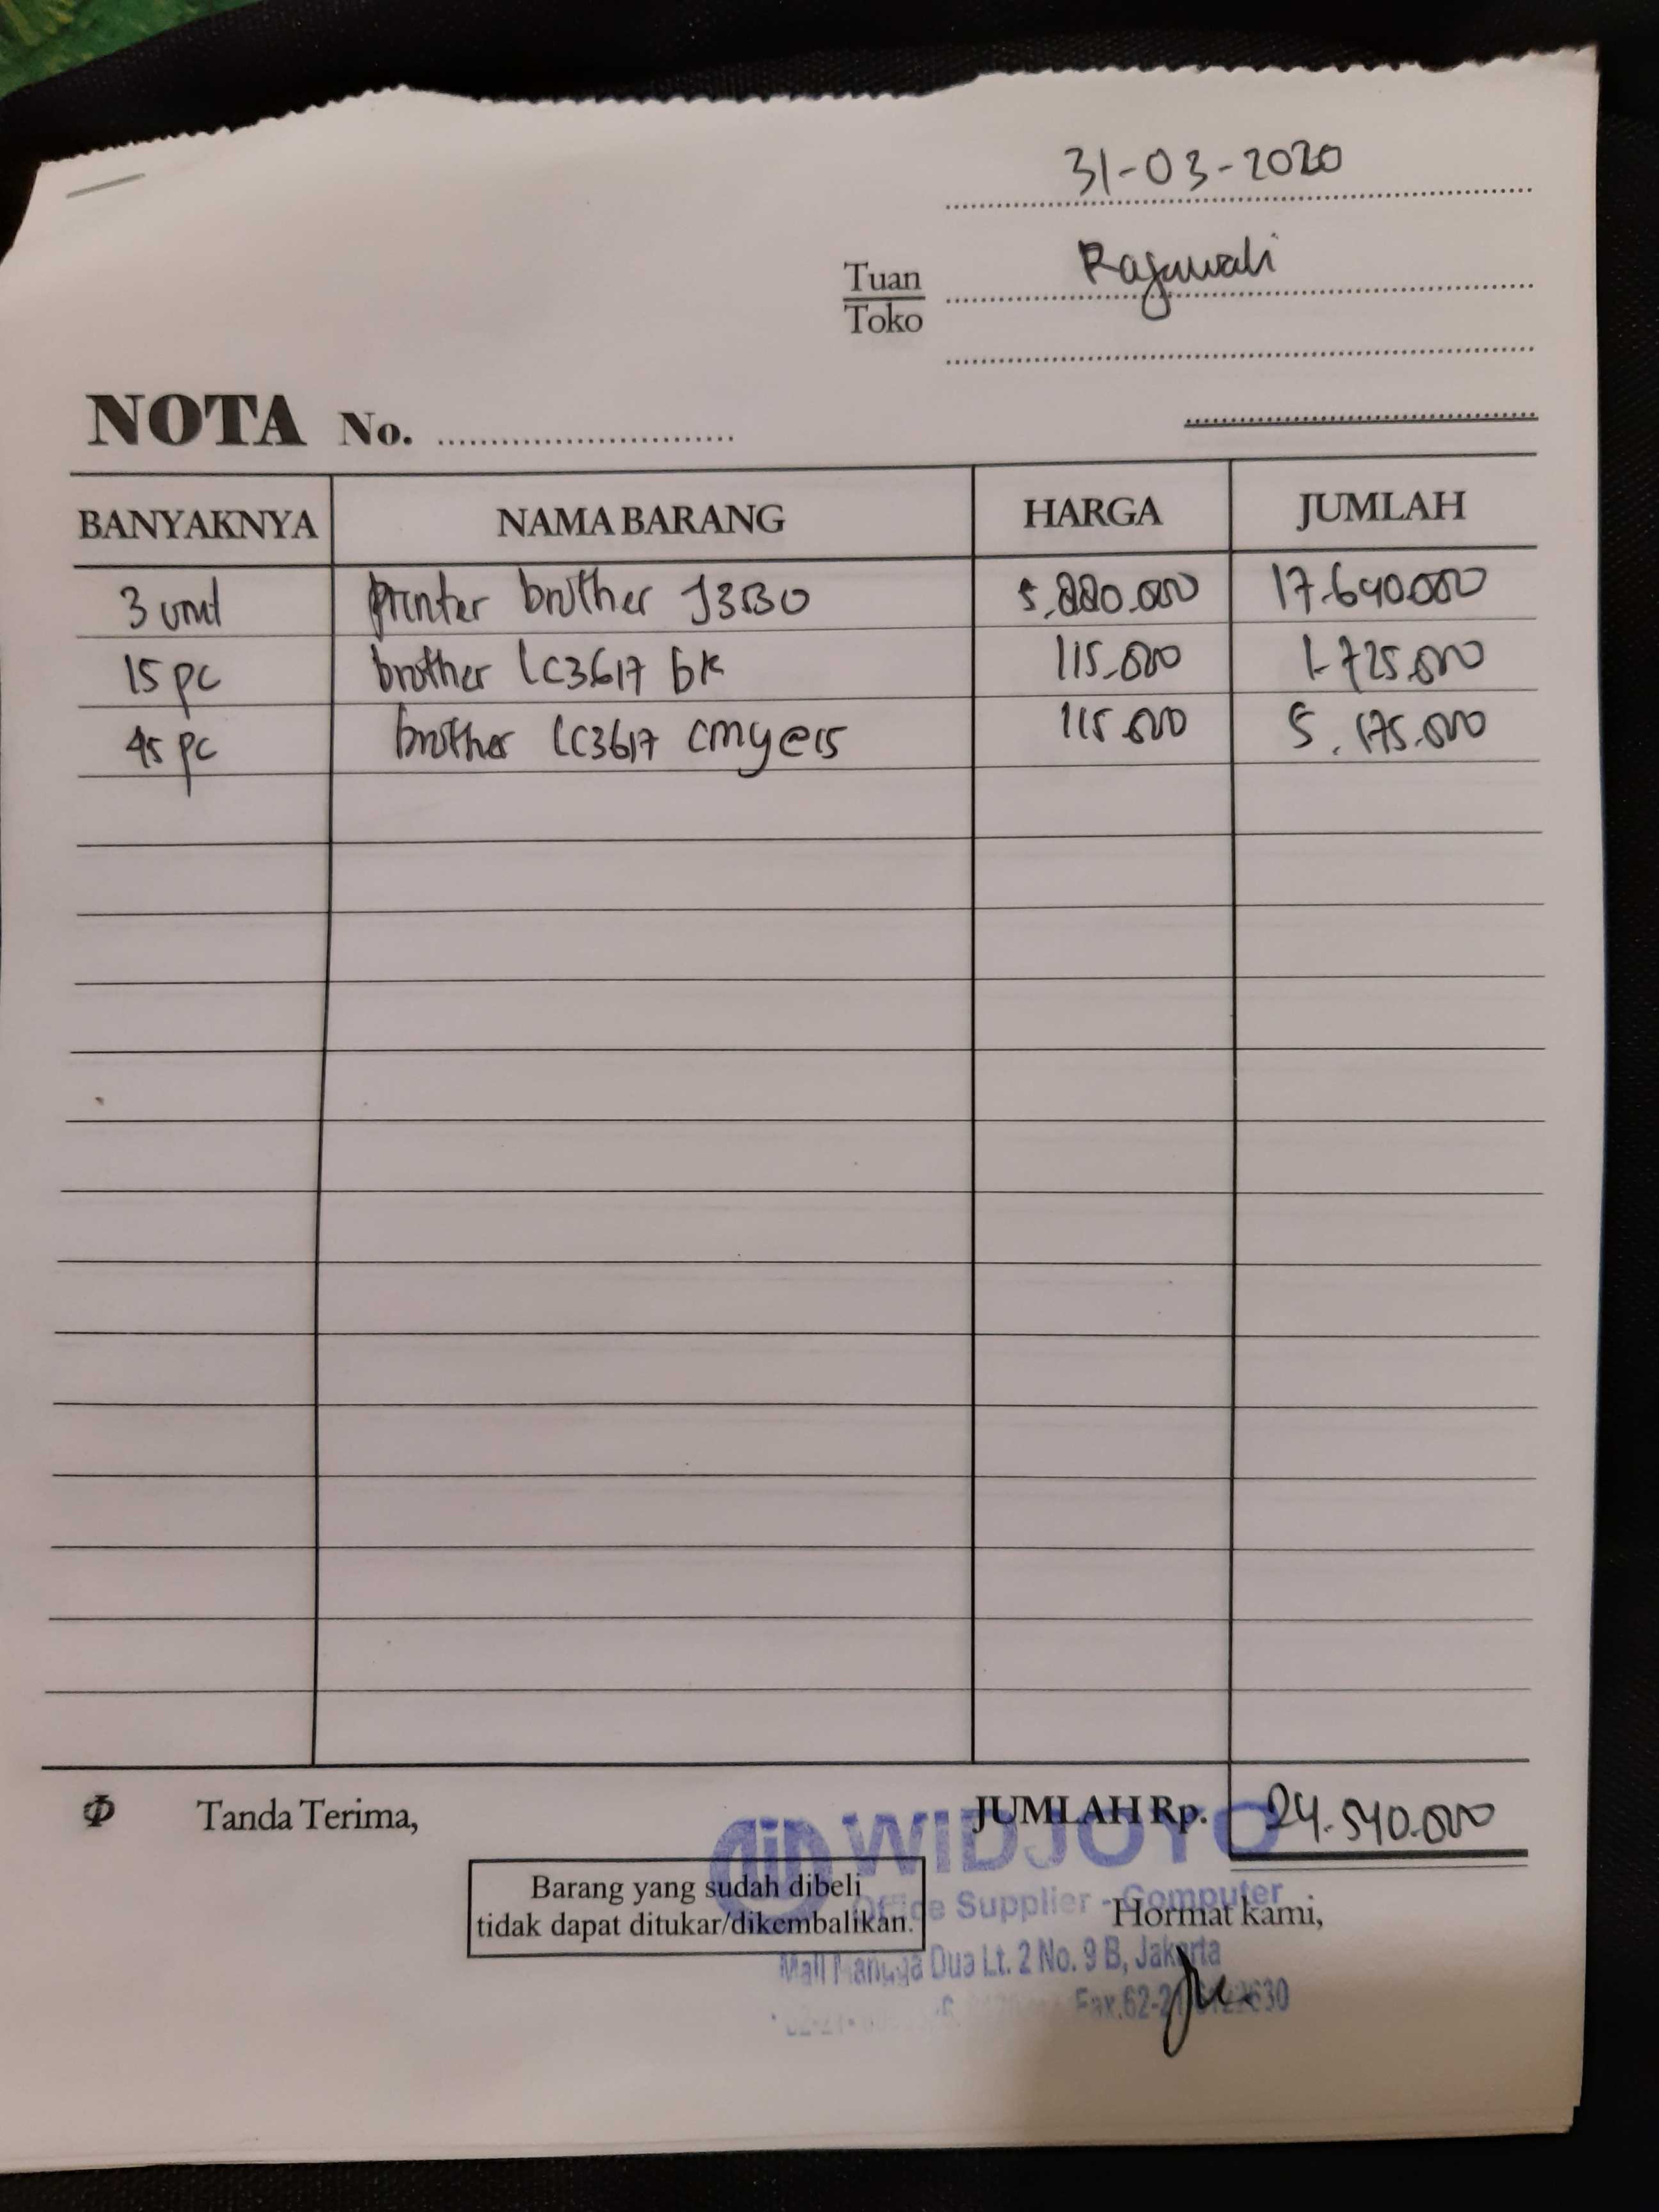 31-03-2020
Tuan
Toko
Rajawali
NOTA No.
BANYAKNYA NAMA BARANG HARGA JUMLAH
3 unit printer brother J3530 5.880.000 17.640.000
15 pc brother LC3617 bk 115.000 1.725.000
45 pc brother LC3617 cmy@15 115.000 5.175.000
Φ Tanda Terima, JUMLAH Rp. 24.540.000
WIDJOYO
Barang yang sudah dibeli
tidak dapat ditukar/dikembalikan.
Office Supplier - Computer
Hormat kami,
Mall Mangga Dua Lt. 2 No. 9 B, Jakarta
Fax.62-21